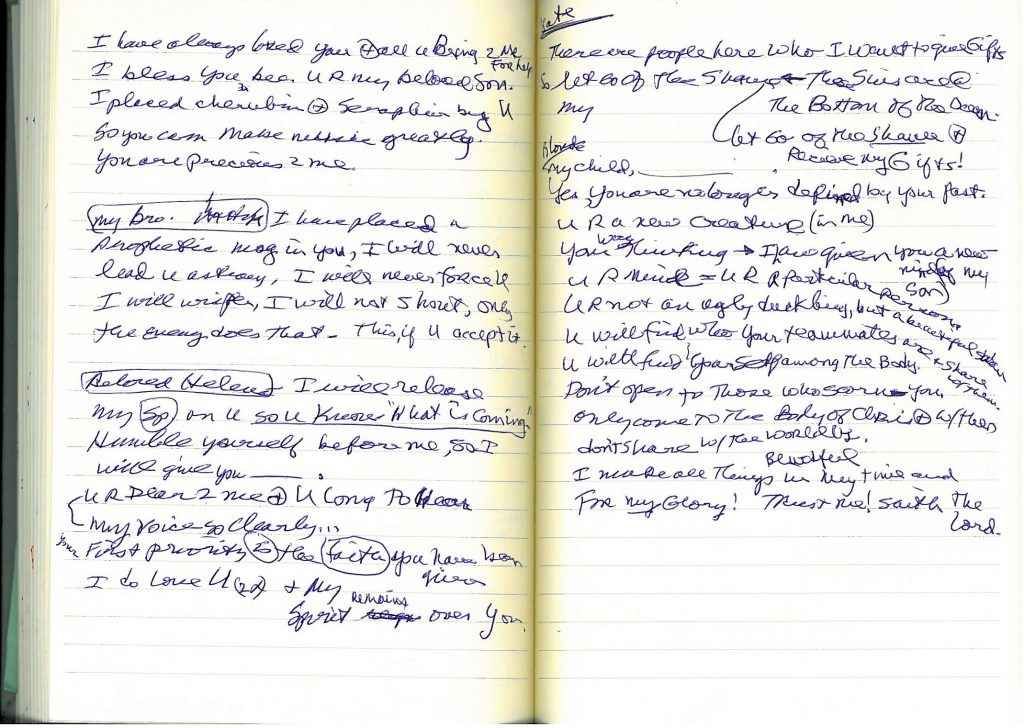 I have always loved you + all u Bring 2 Me
For help.
I bless you bec. U R my Beloved Son.
I placed cherubim + Seraphim by U
So you can make music greatly.
You are precious 2 me.
my bro. I have placed a
Prophetic in you, I will never
lead u astray, I will never forcell
I will whisper, I will not shout, only
the enemy does that - This, if U accept it.
Beloved Helena I will release
my Sp on u so u Know "What is coming."
Humble yourself before me, so I
will give you ____ .
U R Dear 2 me + U Long To Hear
My Voice so Clearly...
Your First priority is the faith you have been
given
I do love U (2x) + My
Remains
Spirit over You.
Kate
There are people here who I want to give Gifts
So let Go of The Shame The Sins are @
my The Bottom of the Ocean.
let Go of the Shame +
Receive my Gifts!
my child, ______
Yes, You are no longer defined by your past.
U R a new Creature (in me)
Your wrong Thinking → I have given you a new
mind my
son)
U R Mine = U R A Particular persona
U R not an ugly duckling, but a beautiful swan
U will find who your teammates are + share
w/ them
U will find Yourself among the Body.
Don't open to Those who scorn You
only come To The Body of Christ + w/ this
don't share w/ the worldly.
Beautiful
I make all Things in my time and
For my Glory! Trust me! saith The
Lord.